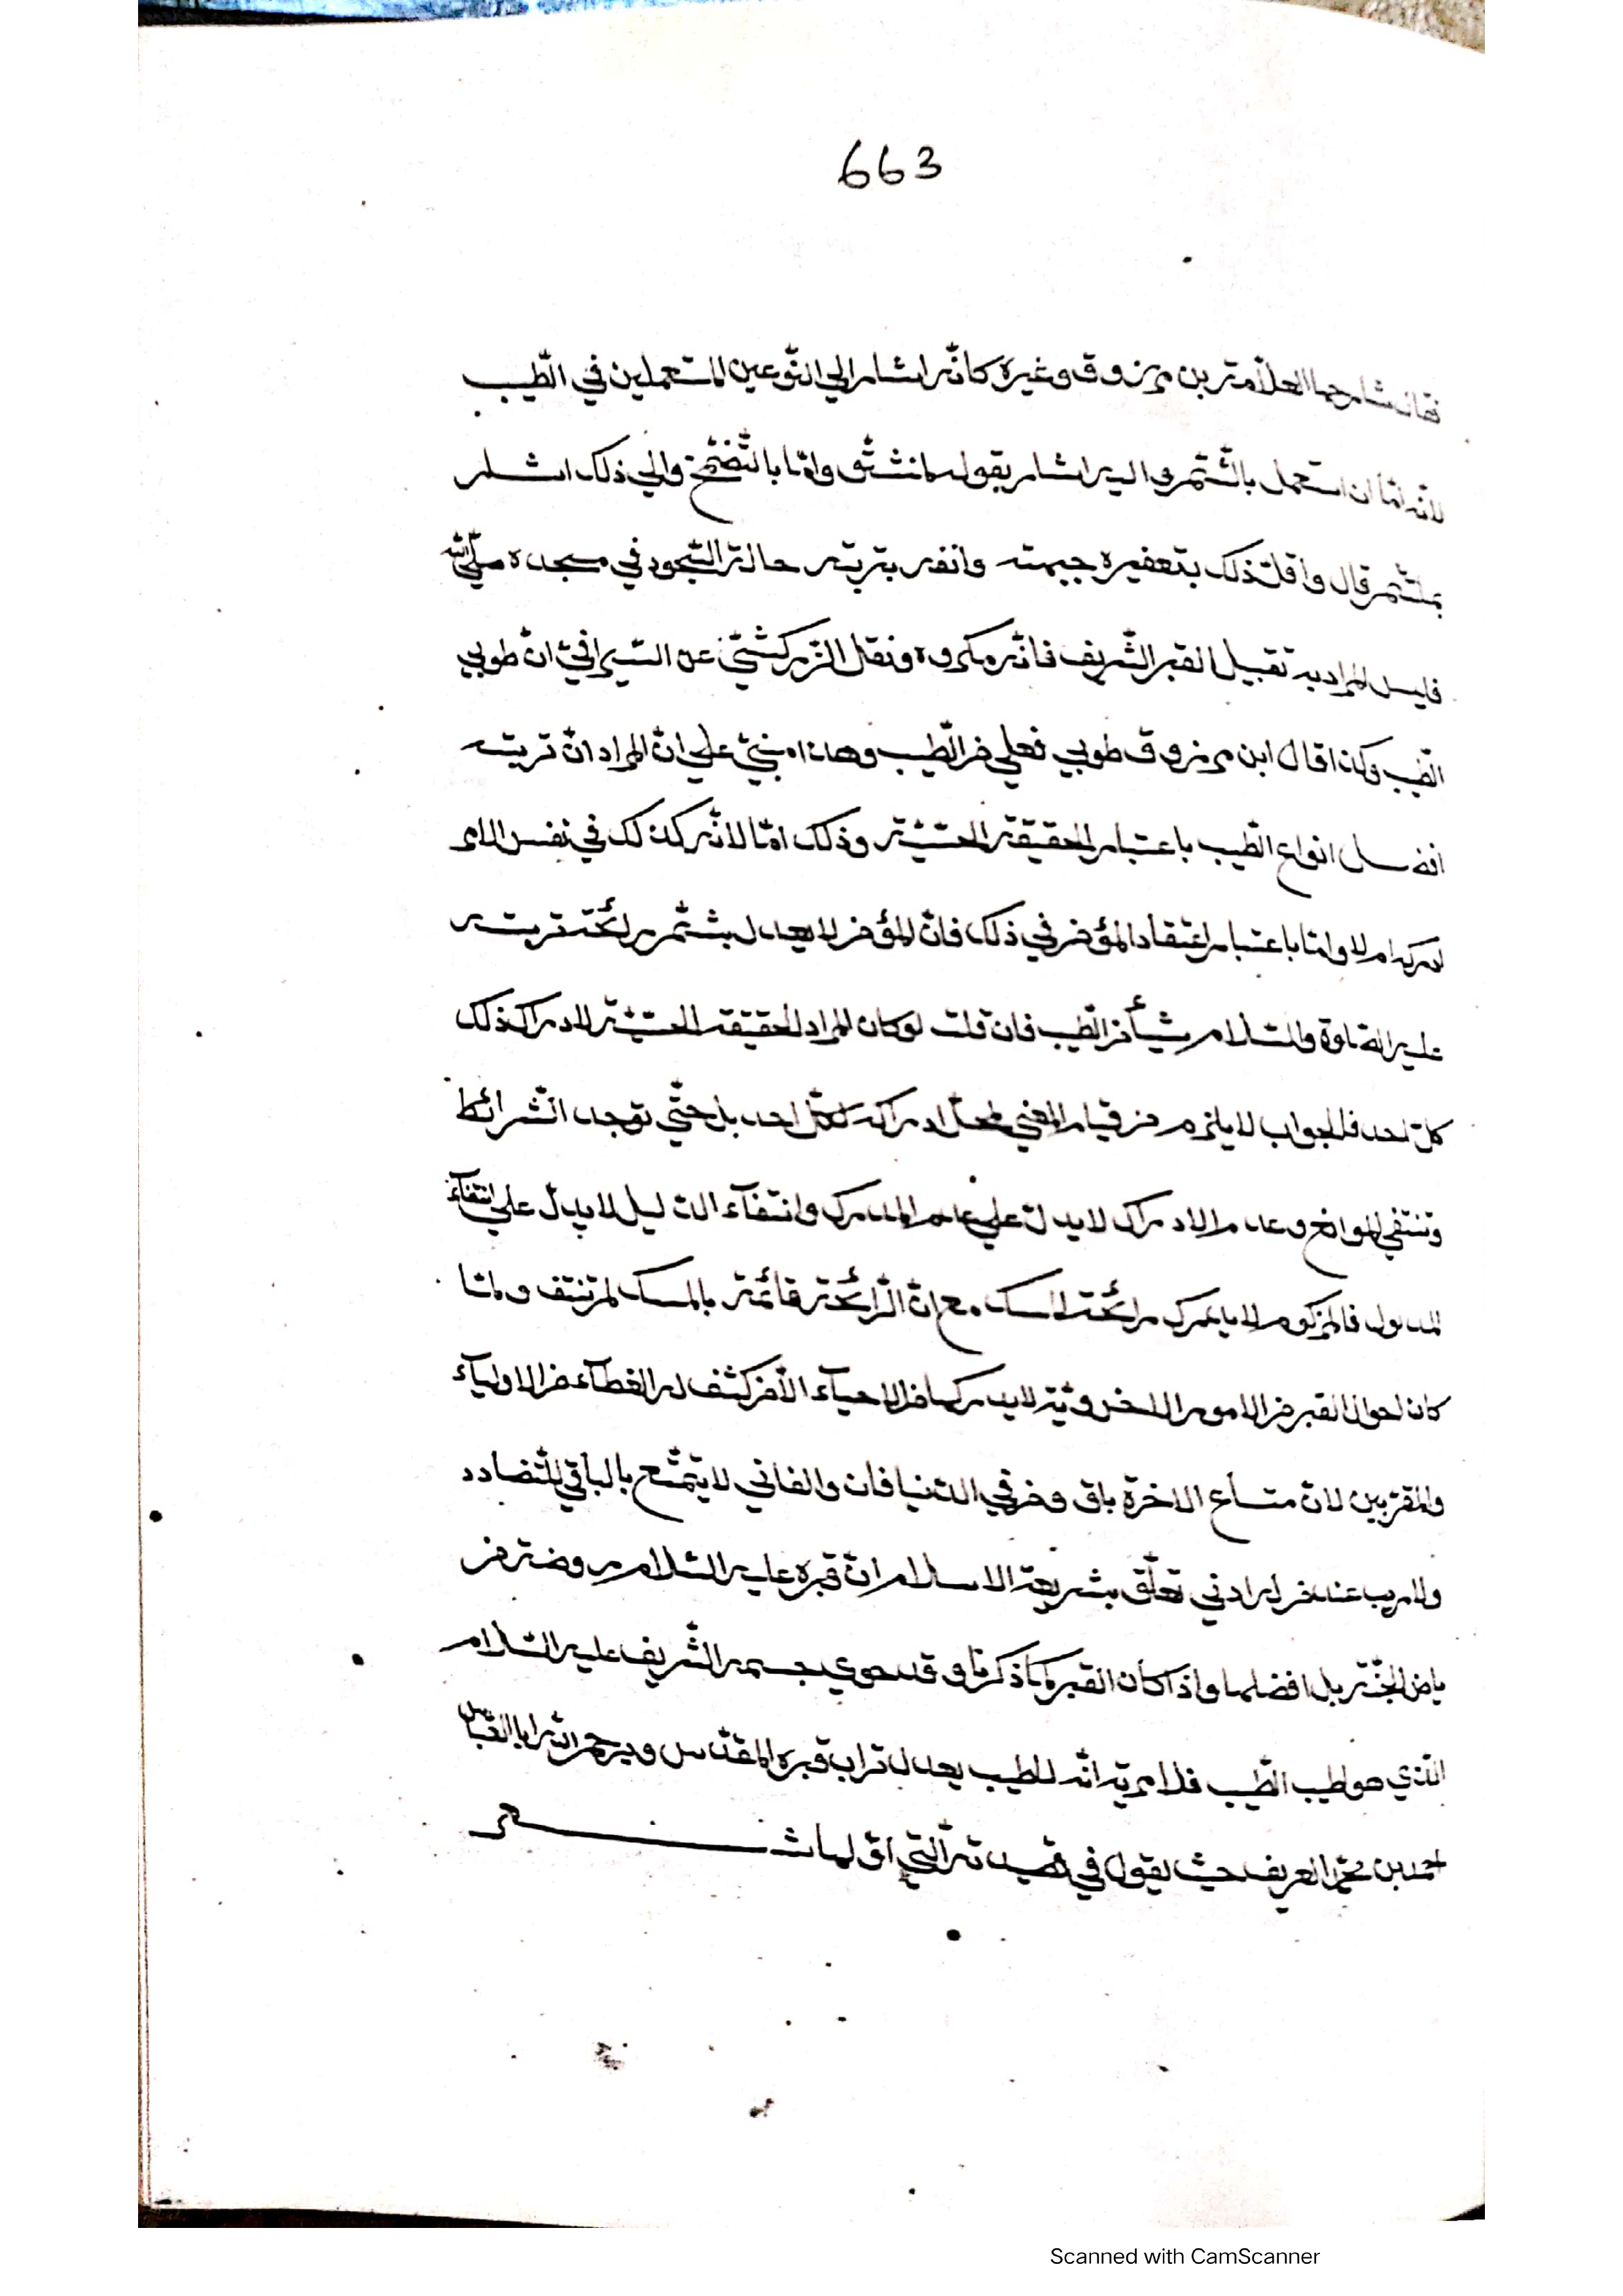 663
فقال شارحها العلّامة بن مرزوق وغيره كانّه اشار الي النّوعين المستعملين في الطّيب
لانّه امّا ان استعمل بالشّمّ واليه اشار بقوله لمنتشق وامّا بالتّضمّخ والي ذلك اشار
بملتثم قال واقلّ ذلك بتعفيره جبهته وانفه بتربته حالة السّجود في مسجده صلّي اللّه
فليس المراد به تقبيل القبر الشّريف فانّه مكروه ونقل الزّركشيّ عن السّيرافيّ انّ طوبي
الطّيب وكذا قال ابن مرزوق طوبي فعلي من الطّيب وهذا مبنيّ علي انّ المراد انّ تربته
افضل انواع الطّيب باعتبار الحقيقة الحسّيّة وذلك امّا لانّه كذلك في نفس الامر
ادركه ام لا وامّا باعتبار اعتقاد المؤمن في ذلك فانّ المؤمن لا يعدل بشمّ رائحة تربته
عليه الصّلوة والسّلام شيأ من الطّيب فان قلت لو كان المراد الحقيقة الحسّيّة لادرك ذلك
كلّ احد فالجواب لا يلزم من قيام المعني بمحلّ ادراكه لكلّ احد بل حتّي توجد الشّرائط
وتنتفي الموانع وعدم الادراك لا يدلّ علي عدم المدرك وانتفآء الدّليل لا يدلّ علي انتفآء
المدلول فالمزكوم لا يدرك رائحة المسك مع انّ الرّائحة قائمة بالمسك لم تنتف ولمّا
كان احوال القبر من الامور الاخرويّة لا يدركها من الاحيآء الّا من كشف له الغطآء من الاوليآء
والمقرّبين لانّ متاع الاخرة باق ومن في الدّنيا فان والفاني لا يتمتّع بالباقي للتّضادد
ولا ريب عند من له ادني تعلّق بشريعة الاسلام انّ قبره عليه السّلام روضة من
رياض الجنّة بل افضلها واذا كان القبر كما ذكرنا وقد حوي جسمه الشّريف عليه السّلام
الّذي هو اطيب الطّيب فلا مرية انّه لا طيب يعدل تراب قبره المقدّس ويرحم اللّه ابا العبّاس
احمد بن محمّد العريف حيث يقول في قصيدته الّتي اوّلها شعر
Scanned with CamScanner